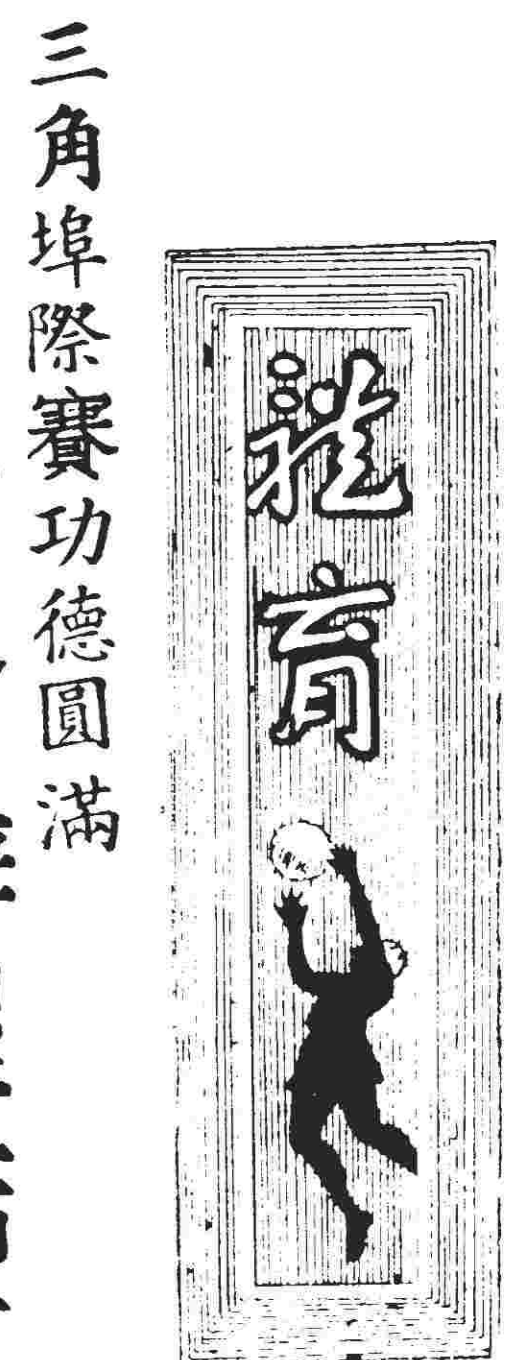 體育
三角埠際賽功德圓滿